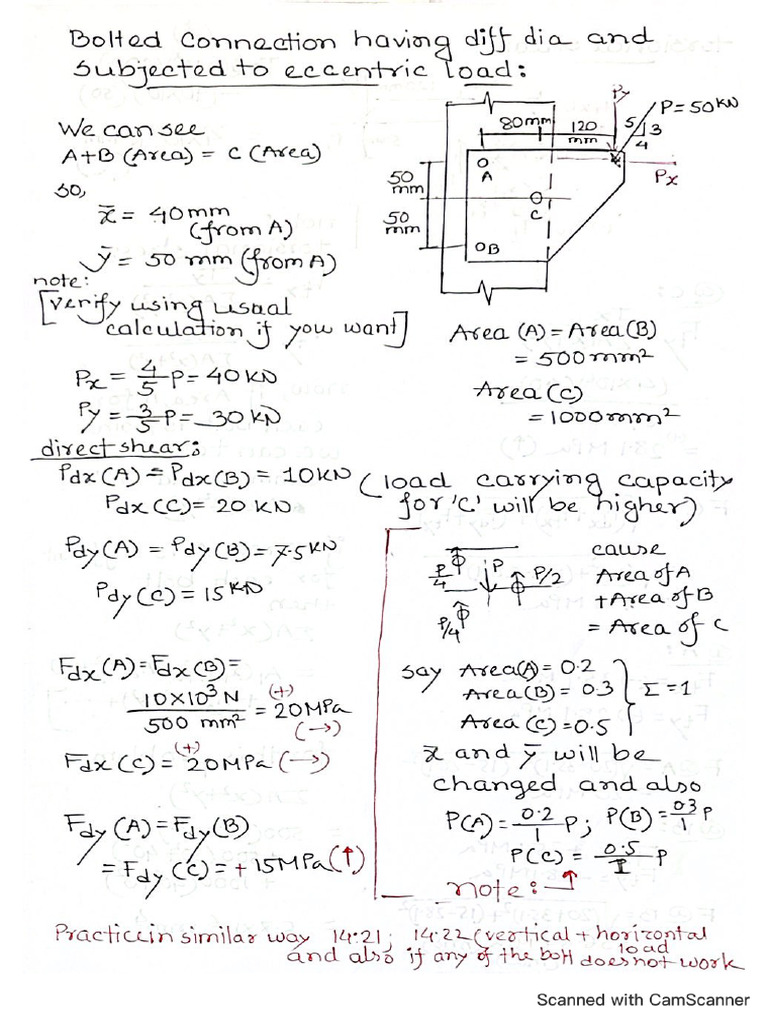 Bolted Connection having diff dia and
subjected to eccentric load:
We can see
A+B (Area) = C (Area)
so,
x̄ = 40mm
(from A)
ȳ = 50 mm (from A)
note:
[verify using usual
calculation if you want]
Px = 4/5 P = 40 KN
Py = 3/5 P = 30 KN
Py
P=50KN
80mm
120
mm
5
3
4
Px
50
mm
50
mm
A
C
B
Area (A) = Area(B)
= 500mm²
Area (C)
= 1000mm²
direct shear:
Pdx(A) = Pdx(B) = 10KN
Pdx(C) = 20 KN
(load carrying capacity
for 'C' will be higher)
Pdy(A) = Pdy(B) = 7.5 KN
Pdy(C) = 15 KN
P/4
P
P/2
P/4
cause
Area of A
+Area of B
= Area of C
Fdx(A) = Fdx(B) =
10X10³ N / 500 mm² = 20MPa
(+)
(→)
Fdx(C) = 20MPa (→)
(+)
say Area(A) = 0.2
Area(B) = 0.3
Area(C) = 0.5
Σ = 1
x̄ and ȳ will be
changed and also
P(A) = 0.2/1 P; P(B) = 0.3/1 P
P(C) = 0.5/1 P
note:
Fdy (A) = Fdy(B)
= Fdy (C) = + 15MPa (↑)
Practice in similar way 14.21; 14.22 (vertical + horizontal
load
and also if any of the bolt does not work
Scanned with CamScanner